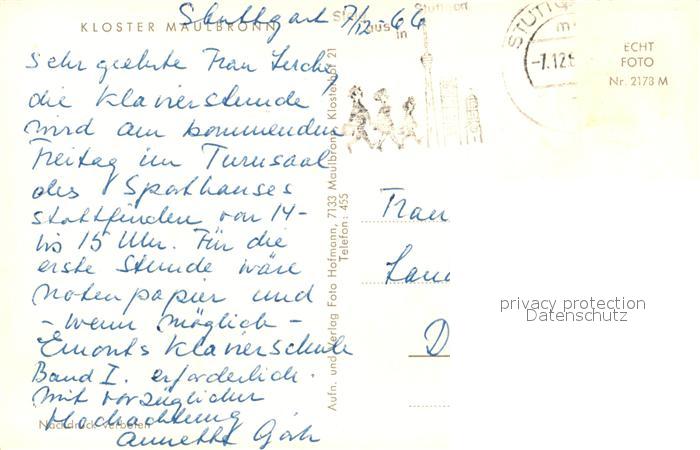 KLOSTER MAULBRONN
Stuttgart 7/12-66
Sehr geehrte Frau Lerche,
die Klavierstunde
wird am kommenden
Freitag im Turnsaal
des Sporthauses
stattfinden von 14-
bis 15 Uhr. Für die
erste Stunde wäre
Notenpapier und
- wenn möglich -
Emonts Klavierschule
Band I. erforderlich.
Mit vorzüglicher
Hochachtung
Annette
Nachdruck verboten
Aufn. und Verlag Foto Hofmann, 7133 Maulbronn, Klosterhof 21
Telefon: 455
in
Stuttgart
STUTTG
-7.12.6
ECHT
FOTO
Nr. 2173 M
Frau
D
privacy protection
Datenschutz